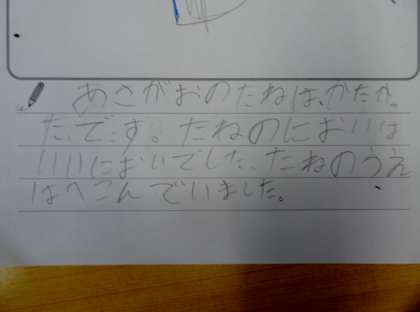 あさがおのたねは、かたか。
たです。たねのにおいは
いいにおいでした、たねのうえ
はへこんでいました。